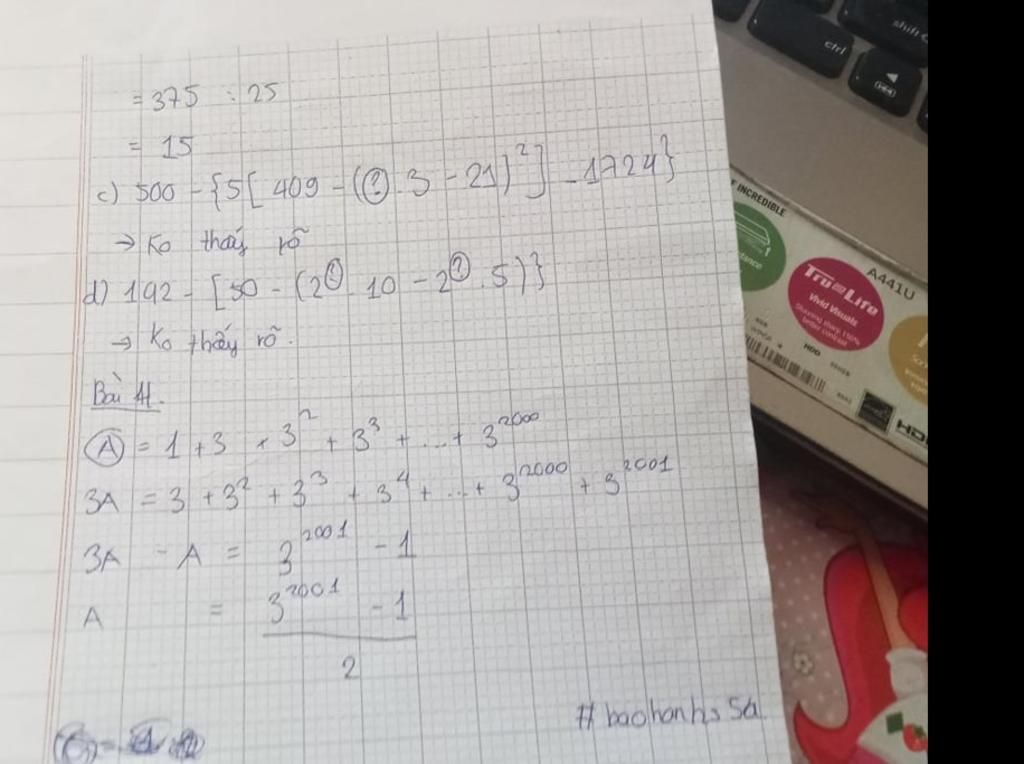 = 375 : 25
= 15
c) 500 - {5[ 409 - (? 3 - 21)²] - 1724}
→ Ko thấy rõ
d) 192 - [50 - (2^? 10 - 2^? . 5)}
→ Ko thấy rõ.
Bài 4.
A = 1 + 3 + 3² + 3³ + ... + 3²⁰⁰⁰
3A = 3 + 3² + 3³ + 3⁴ + ... + 3²⁰⁰⁰ + 3²⁰⁰¹
3A - A = 3²⁰⁰¹ - 1
A = 3²⁰⁰¹ - 1
2
# baohanhs5a
ctrl
shift
INCREDIBLE
Tru Life
Vivid Visuals
A441U
HDD